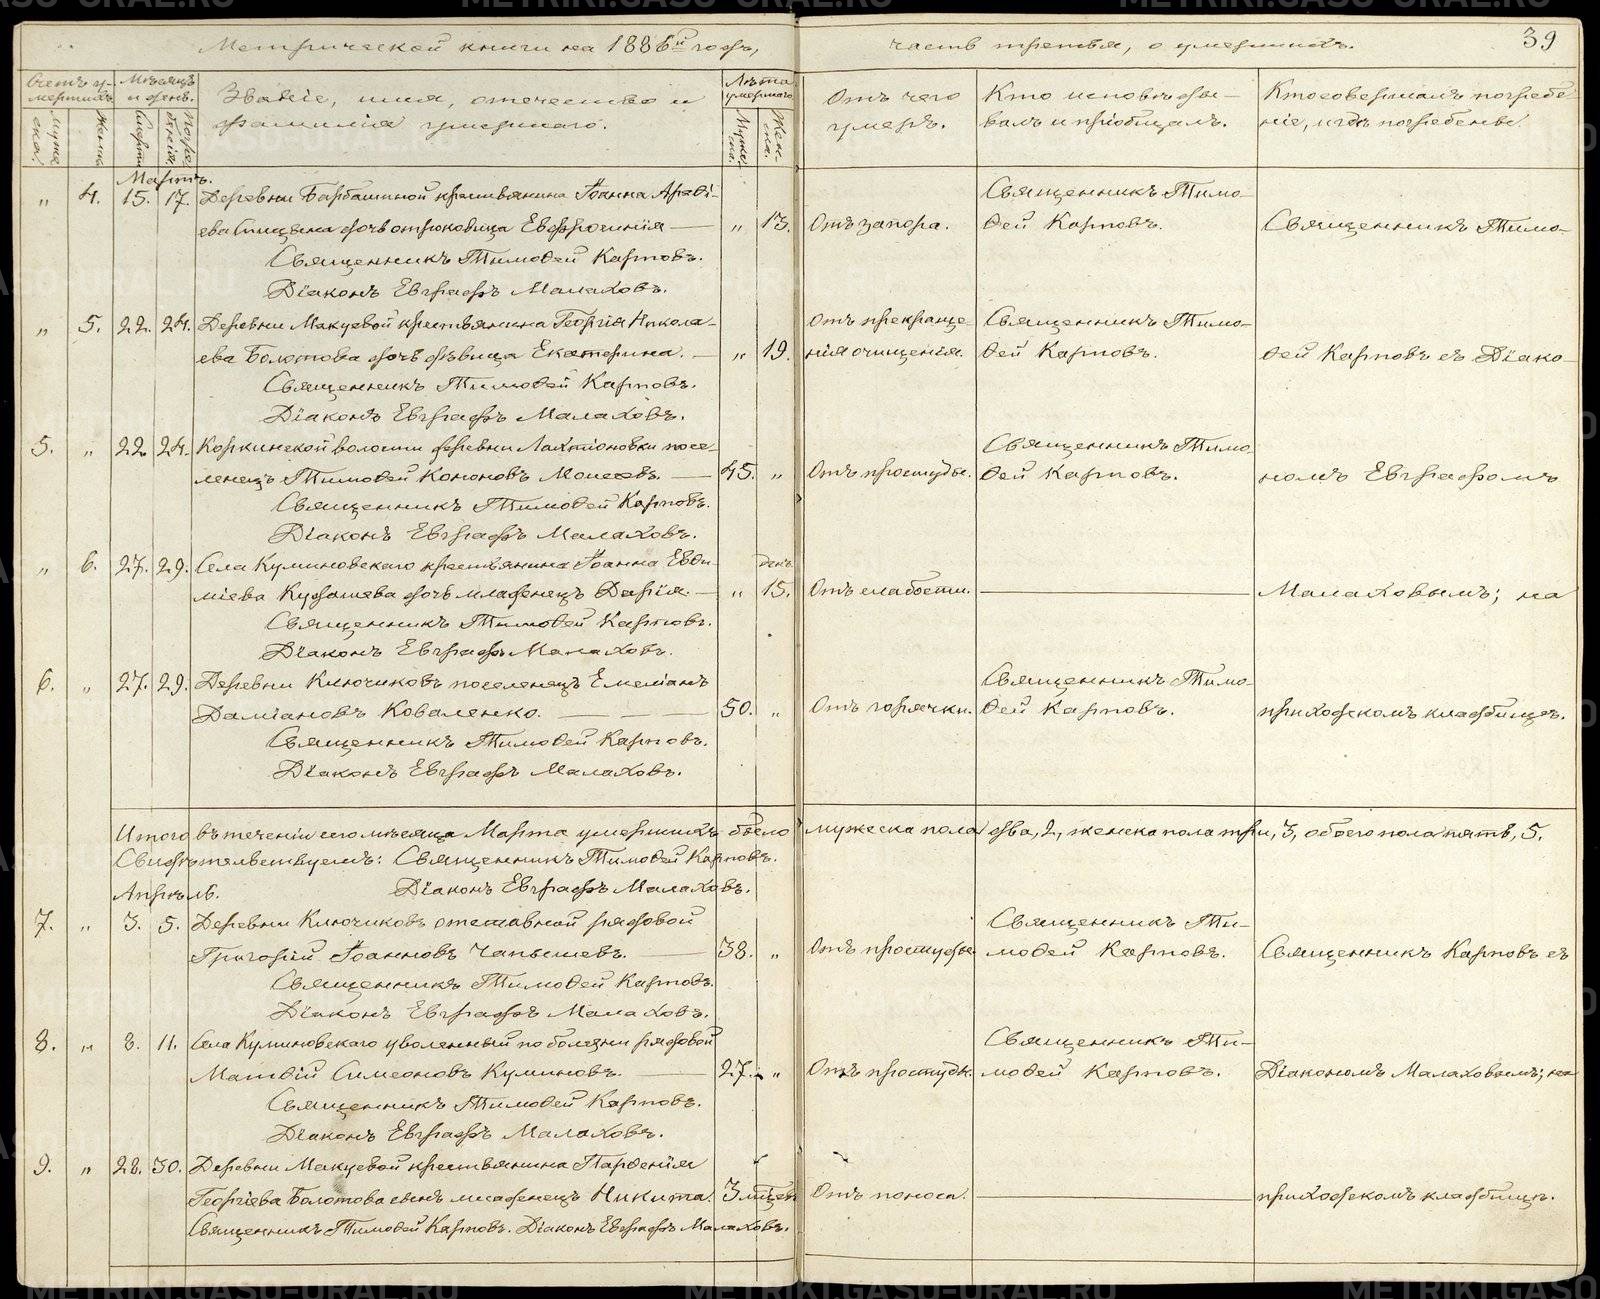 Метрической книги на 1886й годъ,
часть третья, о умершихъ.
39
Счетъ умершихъ.
Мужеска.
Женска.
Мѣсяцъ и день.
Смерти.
Погребенія.
Званіе, имя, отечество и
фамилія умершаго.
Лѣта умершаго.
Мужеска.
Женска.
Отъ чего
умеръ.
Кто исповѣды-
валъ и пріобщалъ.
Кто совершалъ погребе-
ніе, и гдѣ погребены.
Мартъ.
„ 4. 15. 17. Деревни Барбашиной крестьянина Іоанна
дочь отроковица Евфросинія — „ 13. Отъ запора.
Священникъ Тимо-
ѳей Карповъ.
Священникъ Тимо-
Священникъ Тимоѳей Карповъ.
Діаконъ Евграфъ Малаховъ.
„ 5. 22. 24. Деревни Макуевой крестьянина Георгія Никола-
ева Болотова дочь дѣвица Екатерина. — „ 19.
Отъ прекраще-
нія очищенія.
Священникъ Тимо-
ѳей Карповъ.
ѳей Карповъ съ Діако-
Священникъ Тимоѳей Карповъ.
Діаконъ Евграфъ Малаховъ.
5. „ 22. 24. Коркинской волости деревни Лахтіоновки посе-
ленецъ Тимоѳей Кононовъ Моисеевъ. — 45. „ Отъ простуды.
Священникъ Тимо-
ѳей Карповъ.
номъ Евграфомъ
Священникъ Тимоѳей Карповъ.
Діаконъ Евграфъ Малаховъ.
„ 6. 27. 29. Села Куминовскаго крестьянина Іоанна Евѳи-
міева Кудашева дочь младенецъ Дарія. — „ 15. дней Отъ слабости. — Малаховымъ; на
Священникъ Тимоѳей Карповъ.
Діаконъ Евграфъ Малаховъ.
6. „ 27. 29. Деревни Ключиковъ поселенецъ Емеліанъ
Даміановъ Коваленко. — — — 50. „ Отъ горячки.
Священникъ Тимо-
ѳей Карповъ.
приходскомъ кладбищѣ.
Священникъ Тимоѳей Карповъ.
Діаконъ Евграфъ Малаховъ.
Итого въ теченіи сего мѣсяца Марта умершихъ было мужеска пола два, 2, женска пола три, 3, обоего пола пять, 5.
Свидѣтельствуемъ: Священникъ Тимоѳей Карповъ.
Діаконъ Евграфъ Малаховъ.
Апрѣль.
7. „ 3. 5. Деревни Ключиковъ отставной рядовой
Григорій Іоанновъ Чапышевъ. — 38. „ Отъ простуды.
Священникъ Ти-
моѳей Карповъ.
Священникъ Карповъ съ
Священникъ Тимоѳей Карповъ.
Діаконъ Евграфъ Малаховъ.
8. „ 8. 11. Села Куминовскаго уволенный по болезни рядовой
Матвій Симеоновъ Куминовъ. — 27. „ Отъ простуды.
Священникъ Ти-
моѳей Карповъ.
Діакономъ Малаховымъ; на
Священникъ Тимоѳей Карповъ.
Діаконъ Евграфъ Малаховъ.
9. „ 28. 30. Деревни Макуевой крестьянина Парѳенія
Георгіева Болотова сынъ младенецъ Никита. 3 мѣсец. Отъ поноса. — приходскомъ кладбищѣ.
Священникъ Тимоѳей Карповъ. Діаконъ Евграфъ Малаховъ.
METRIKI.GASO-URAL.RU